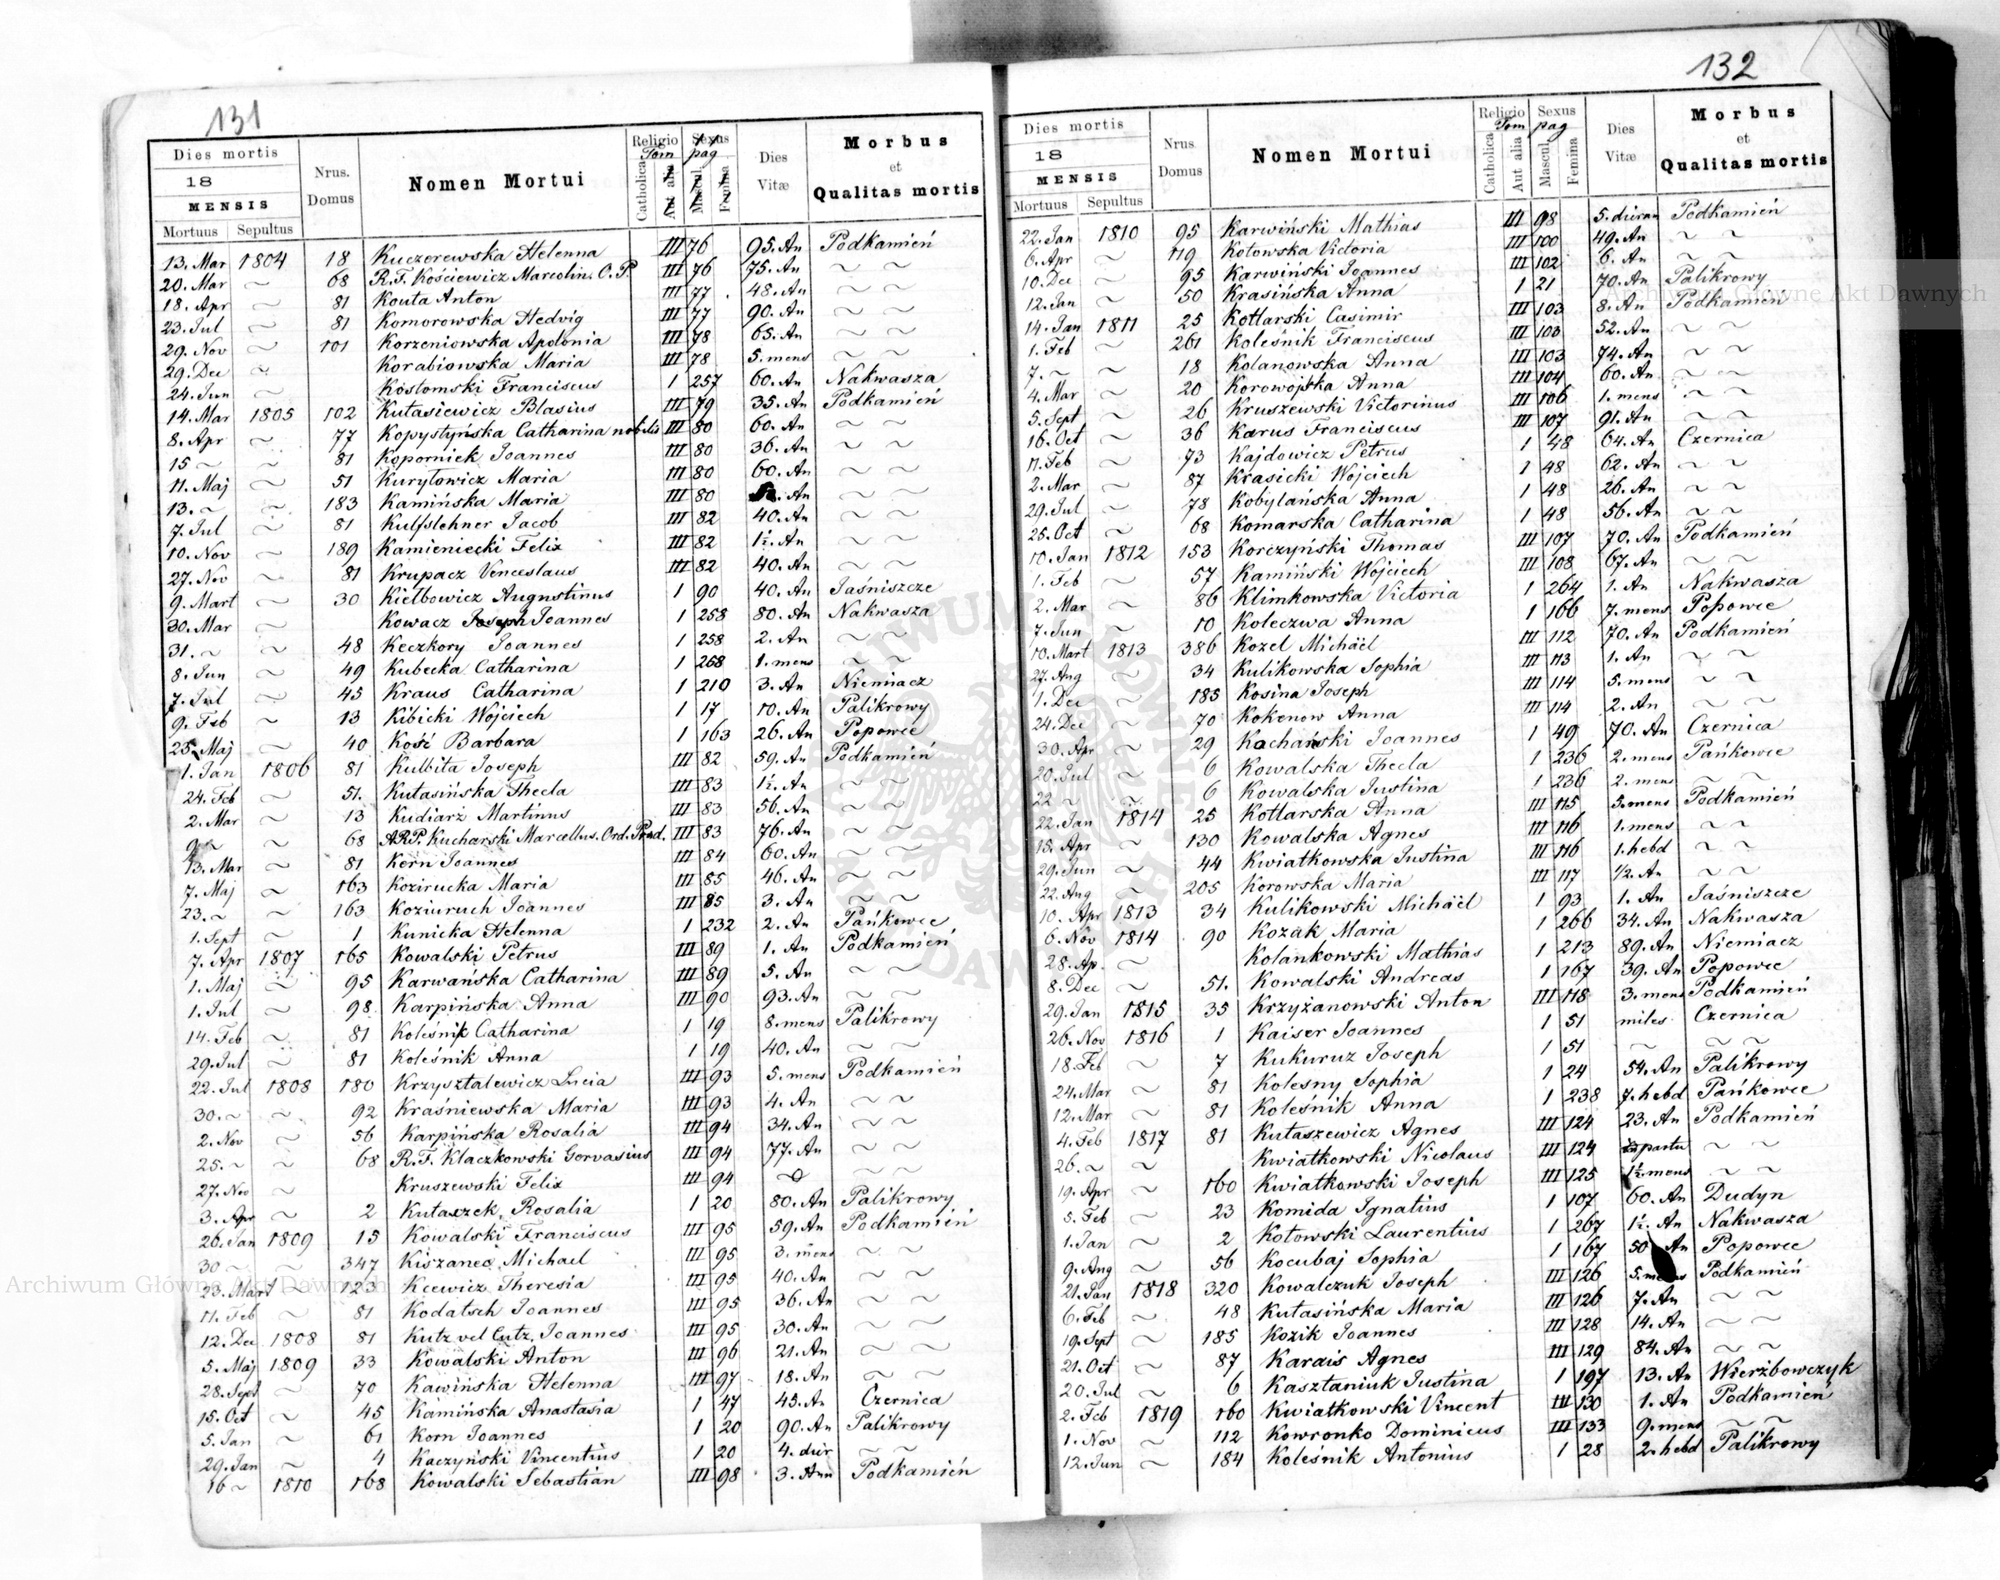 131
Dies mortis
18
MENSIS
Mortuus Sepultus
Nrus. Domus
Nomen Mortui
Religio
Tom
Catholica
Aut alia
Sexus
pag
Mascul.
Femina
Dies Vitæ
Morbus
et
Qualitas mortis
13. Mar 1804 18 Kuczerewska Helenna III 76 95. An Podkamień
20. Mar ~ 68 R.F. Kościewicz Marcolin. O. P III 76 75. An ~ ~
18. Apr ~ 81 Kouta Anton III 77 48. An ~ ~
23. Jul ~ 81 Komorowska Hedvig III 77 90. An ~ ~
29. Nov ~ 101 Korzeniowska Apolonia III 78 65. An ~ ~
29. Dec ~ Korabiowska Maria III 78 5. mens ~ ~
24. Jun ~ Koslomski Franciscus 1 257 60. An Nakwasza
14. Mar 1805 102 Kutasiewicz Blasius III 79 35. An Podkamień
8. Apr ~ 77 Kopystyńska Catharina nobilis III 80 60. An ~ ~
15 ~ ~ 81 Koporniek Joannes III 80 36. An ~ ~
11. Maj ~ 51 Kuryłowicz Maria III 80 60. An ~ ~
13. ~ ~ 183 Kamińska Maria III 80 An ~ ~
7. Jul ~ 81 Kulfslehner Jacob III 82 40. An ~ ~
10. Nov ~ 189 Kamieniecki Felix III 82 1½. An ~ ~
27. Nov ~ 81 Krupacz Venceslaus III 82 40. An ~ ~
9. Mart ~ 30 Kielbowicz Augustinus 1 90 40. An Jaśniszcze
30. Mar ~ Kowacz Joseph Joannes 1 258 80. An Nakwasza
31. ~ ~ 48 Keczkory Joannes 1 258 2. An ~ ~
8. Jun ~ 49 Kubecka Catharina 1 258 1. mens ~ ~
7. Jul ~ 45 Kraus Catharina 1 210 3. An Niemiacz
9. Feb ~ 13 Kibicki Wojciech 1 17 10. An Palikrowy
25. Maj ~ 40 Kość Barbara 1 163 26. An Popowce
1. Jan 1806 81 Kulbita Joseph III 82 59. An Podkamień
24. Feb ~ 51. Kutasińska Thecla III 83 1½. An ~ ~
2. Mar ~ 13 Kudiarz Martinus III 83 56. An ~ ~
9 ~ ~ 68 A.R.P. Kucharski Marcellus. Ord. Præd. III 83 76. An ~ ~
13. Mar ~ 81 Kern Joannes III 84 60. An ~ ~
7. Maj ~ 163 Kozirucka Maria III 85 46. An ~ ~
23. ~ ~ 163 Koziuruch Joannes III 85 3. An ~ ~
1. Sept ~ 1 Kunicka Helenna 1 232 2. An Pańkowce
7. Apr 1807 165 Kowalski Petrus III 89 1. An Podkamień
1. Maj ~ 95 Karwańska Catharina III 89 5. An ~ ~
1. Jul ~ 98 Karpińska Anna III 90 93. An ~ ~
14. Feb ~ 81 Koleśnik Catharina 1 19 8. mens Palikrowy
29. Jul ~ 81 Koleśnik Anna 1 19 40. An ~ ~
22. Jul 1808 180 Krzysztalewicz Lucia III 93 5. mens Podkamień
30. ~ ~ 92 Kraśniewska Maria III 93 4. An ~ ~
2. Nov ~ 56 Karpińska Rosalia III 94 34. An ~ ~
25. ~ ~ 68 R.F. Klaczkowski Gervasius III 94 77. An ~ ~
27. Nov ~ Kruszewski Felix III 94 ~ ~
3. Apr ~ 2 Kutaszek Rosalia 1 20 80. An Palikrowy
26. Jan 1809 15 Kowalski Franciscus III 95 59. An Podkamień
30 ~ ~ 347 Kiszanec Michael III 95 3. mens ~ ~
23. Mart ~ 123 Kcewicz Theresia III 95 40. An ~ ~
11. Feb ~ 81 Kodatsch Joannes III 95 36. An ~ ~
12. Dec 1808 81 Kutz vel Cutz, Joannes III 95 30. An ~ ~
5. Maj 1809 33 Kowalski Anton III 96 21. An ~ ~
28. Sept ~ 70 Kawińska Helenna III 97 18. An ~ ~
15. Oct ~ 45 Kamińska Anastasia 1 47 45. An Czernica
5. Jan ~ 61 Korn Joannes 1 20 90. An Palikrowy
29. Jan ~ 4 Kaczyński Vincentius 1 20 4. dier ~ ~
16 ~ 1810 168 Kowalski Sebastian III 98 3. Ann Podkamień
132
Dies mortis
18
MENSIS
Mortuus Sepultus
Nrus. Domus
Nomen Mortui
Religio
Tom
Catholica
Aut alia
Sexus
pag
Mascul.
Femina
Dies Vitæ
Morbus
et
Qualitas mortis
22. Jan 1810 95 Karwiński Mathias III 98 5. dieran Podkamień
6. Apr ~ 119 Kotowska Victoria III 100 49. An ~ ~
10. Dec ~ 95 Karwiński Joannes III 102 6. An ~ ~
12. Jan ~ 50 Krasińska Anna 1 21 70. An Palikrowy
14. Jan 1811 25 Kotlarski Casimir III 103 8. An Podkamień
1. Feb ~ 261 Koleśnik Franciscus III 103 52. An ~ ~
7. ~ ~ 18 Kolanowska Anna III 103 74. An ~ ~
4. Mar ~ 20 Korowojska Anna III 104 60. An ~ ~
5. Sept ~ 26 Kruszewski Victorinus III 106 1. mens ~ ~
16. Oct ~ 36 Karus Franciscus III 107 91. An ~ ~
11. Feb ~ 73 Kajdowicz Petrus 1 48 64. An Czernica
2. Mar ~ 87 Krasicki Wojciech 1 48 62. An ~ ~
29. Jul ~ 78 Kobylańska Anna 1 48 26. An ~ ~
25. Oct ~ 68 Komarska Catharina 1 48 56. An ~ ~
10. Jan 1812 153 Korczyński Thomas III 107 70. An Podkamień
1. Feb ~ 57 Kamiński Wojciech III 108 67. An ~ ~
2. Mar ~ 86 Klimkowska Victoria 1 264 1. An Nakwasza
7. Jun ~ 10 Koleczwa Anna 1 166 7. mens Popowce
10. Mart 1813 386 Kozel Michäel III 112 70. An Podkamień
27. Aug ~ 34 Kulikowska Sophia III 113 1. An ~ ~
1. Dec ~ 185 Kosina Joseph III 114 5. mens ~ ~
24. Dec ~ 70 Kokenow Anna III 114 2. An ~ ~
30. Apr ~ 29 Kochański Joannes 1 49 70. An Czernica
20. Jul ~ 6 Kowalska Thecla 1 236 2. mens Pańkowce
22 ~ ~ 6 Kowalska Justina 1 236 2. mens ~ ~
22. Jan 1814 25 Kotlarska Anna III 115 5. mens Podkamień
15. Apr ~ 130 Kowalska Agnes III 116 1. mens ~ ~
29. Jun ~ 44 Kwiatkowska Justina III 116 1. hebd ~ ~
22. Aug ~ 205 Korowska Maria III 117 1/2. An ~ ~
10. Apr 1813 34 Kulikowski Michäel 1 93 1. An Jaśniszcze
6. Nov 1814 90 Kozak Maria 1 266 34. An Nakwasza
28. Ap. ~ Kolankowski Mathias 1 213 89. An Niemiacz
8. Dec ~ 51. Kowalski Andreas 1 167 39. An Popowce
29. Jan 1815 35 Krzyżanowski Anton III 118 3. mens Podkamień
26. Nov 1816 1 Kaiser Joannes 1 51 miles Czernica
18. Feb ~ 7 Kukuruz Joseph 1 51 ~ ~ ~
24. Mar ~ 81 Kolesny Sophia 1 24 54. An Palikrowy
12. Mar ~ 81 Koleśnik Anna 1 238 7. hebd Pańkowce
4. Feb 1817 81 Kutaszewicz Agnes III 124 23. An Podkamień
26. ~ ~ Kwiatkowski Nicolaus III 124 partu ~ ~
19. Apr ~ 160 Kwiatkowski Joseph III 125 1½ mens ~ ~
5. Feb ~ 23 Komida Ignatius 1 107 60. An Dudyn
1. Jan ~ 2 Kotowski Laurentius 1 267 1½. An Nakwasza
9. Aug ~ 56 Kocubaj Sophia 1 167 50 An Popowce
21. Jan 1818 320 Kowalczuk Joseph III 126 5. mens Podkamień
6. Feb ~ 48 Kutasińska Maria III 126 7. An ~ ~
19. Sept ~ 185 Kozik Joannes III 128 14. An ~ ~
21. Oct ~ 87 Karais Agnes III 129 84. An ~ ~
20. Jul ~ 6 Kasztaniuk Justina 1 197 13. An Wierzbowczyk
2. Feb 1819 160 Kwiatkowski Vincent III 130 1. An Podkamień
1. Nov ~ 112 Kowronko Dominicus III 133 9. mens ~ ~
12. Jun ~ 184 Koleśnik Antonius 1 28 2. hebd Palikrowy
Archiwum Główne Akt Dawnych
Archiwum Główne Akt Dawnych